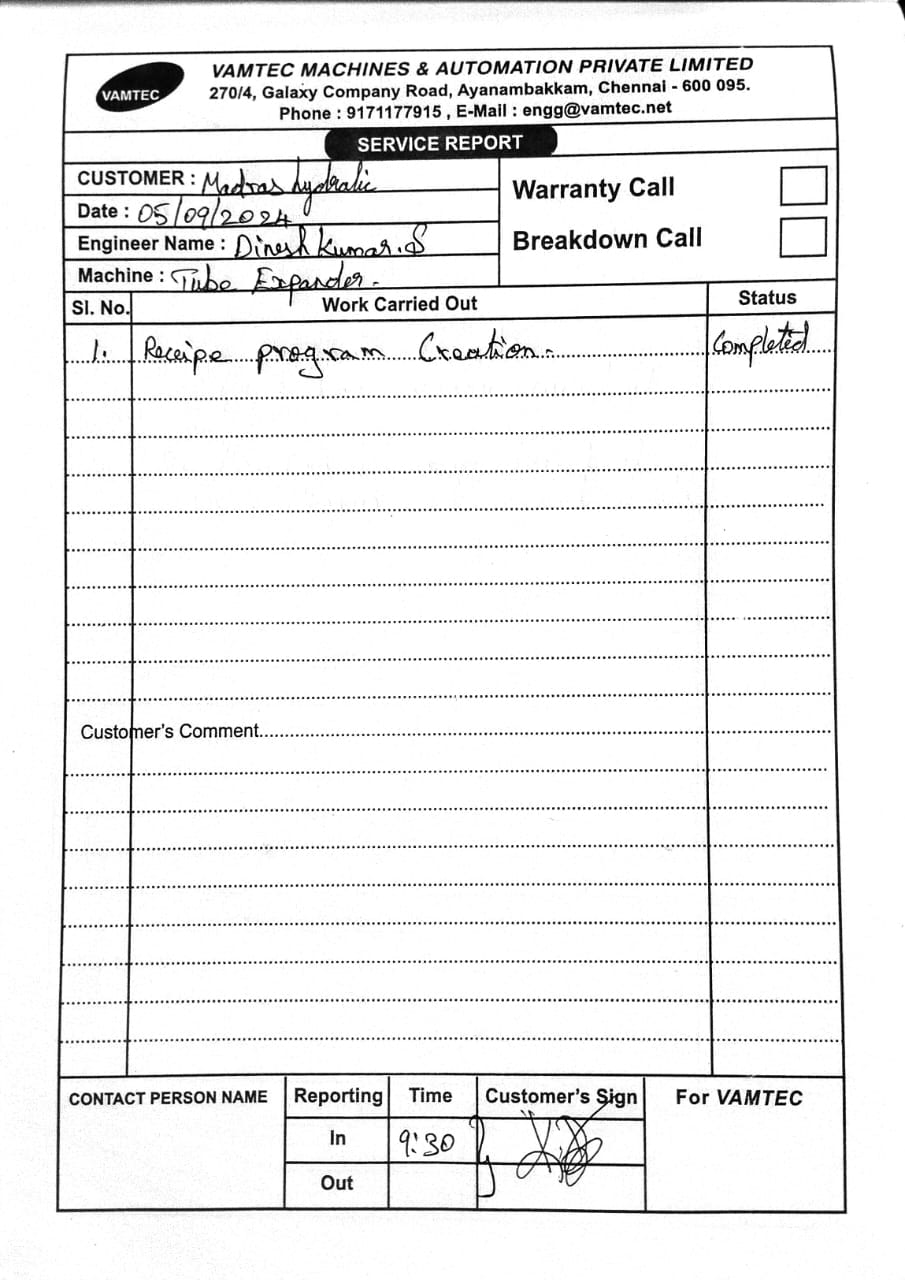 VAMTEC
VAMTEC MACHINES & AUTOMATION PRIVATE LIMITED
270/4, Galaxy Company Road, Ayanambakkam, Chennai - 600 095.
Phone : 9171177915 , E-Mail : engg@vamtec.net
SERVICE REPORT
CUSTOMER : Madras hydralic
Date : 05/09/2024
Engineer Name : Dinesh Kumar.S
Machine : Tube Expander.
Warranty Call
Breakdown Call
Sl. No. Work Carried Out Status
1. Receipe program Creation. Completed
Customer's Comment
CONTACT PERSON NAME Reporting Time Customer's Sign For VAMTEC
In 9:30
Out